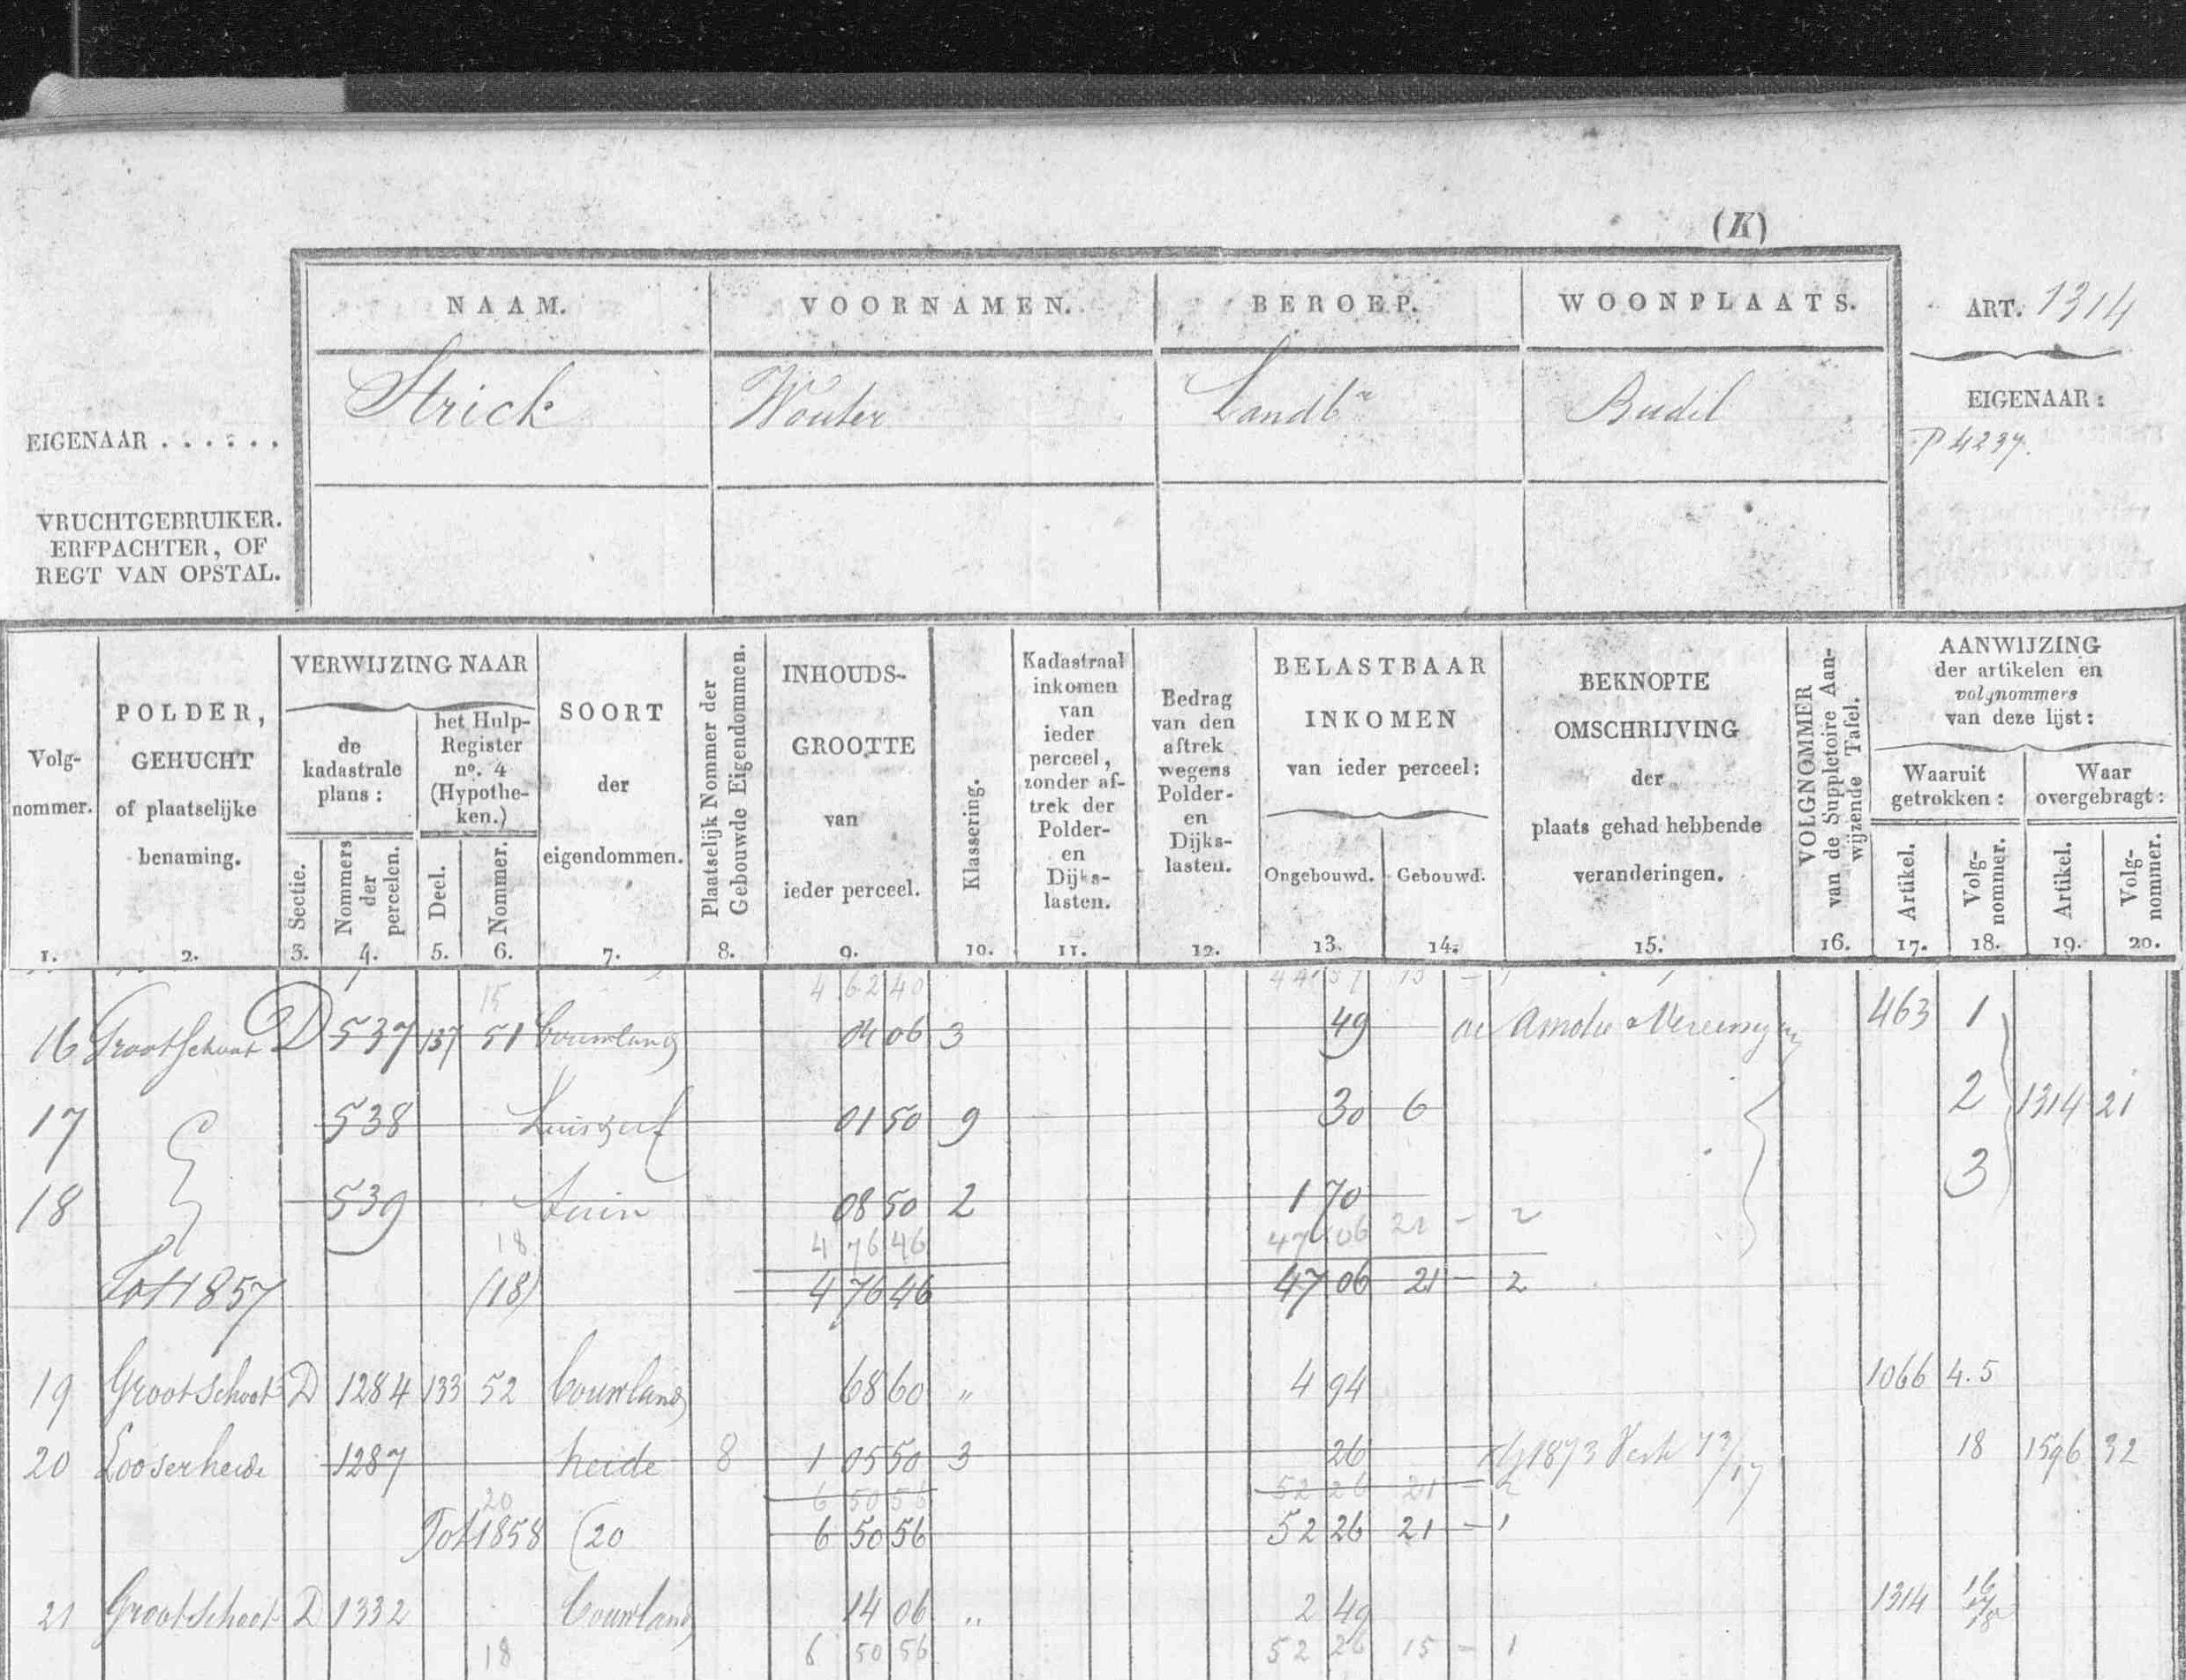 (K)
NAAM. VOORNAMEN. BEROEP. WOONPLAATS. ART. 1314
EIGENAAR . . . . . . Strick Wouter Landbr Budel EIGENAAR:
P 4237.
VRUCHTGEBRUIKER.
ERFPACHTER, OF
REGT VAN OPSTAL.
Volg-
nommer.
1.
POLDER,
GEHUCHT
of plaatselijke
benaming.
2.
VERWIJZING NAAR
de
kadastrale
plans:
Sectie.
3.
Nommers
der
percelen.
4.
het Hulp-
Register
no. 4
(Hypothe-
ken.)
Deel.
5.
Nommer.
6.
SOORT
der
eigendommen.
7.
Plaatselijk Nommer der
Gebouwde Eigendommen.
8.
INHOUDS-
GROOTTE
van
ieder perceel.
9.
Klassering.
10.
Kadastraal
inkomen
van
ieder
perceel,
zonder af-
trek der
Polder-
en
Dijks-
lasten.
11.
Bedrag
van den
aftrek
wegens
Polder-
en
Dijks-
lasten.
12.
BELASTBAAR
INKOMEN
van ieder perceel:
Ongebouwd.
13.
Gebouwd.
14.
BEKNOPTE
OMSCHRIJVING
der
plaats gehad hebbende
veranderingen.
15.
VOLGNOMMER
van de Suppletoire Aan-
wijzende Tafel.
16.
AANWIJZING
der artikelen en
volgnommers
van deze lijst:
Waaruit
getrokken:
Artikel.
17.
Volg-
nommer.
18.
Waar
overgebragt:
Artikel.
19.
Volg-
nommer.
20.
15 4 62 40
16 Grootschoot D 537 137 51 bouwland 04 06 3 49 Vereeniging 463 1
17 538 huis & erf 01 50 9 30 6 2 1314 21
18 539 tuin 08 50 2 1 70 3
18 4 76 46 47 06 21 - 2
Tot 1857 (18) 4 76 46 47 06 21 - 2
19 Grootschoot D 1284 133 52 bouwland 68 60 " 4 94 1066 4.5
20 Looserheide 1287 heide 8 1 05 50 3 26 1873 Verk 73/17 18 1596 32
20 6 50 56 52 26 21 - 2
Tot 1858 (20 6 50 56 52 26 21 - 1
21 Grootschoot D 1332 bouwland 14 06 " 2 49 1314 16 17 18
18 6 50 56 52 26 15 - 1